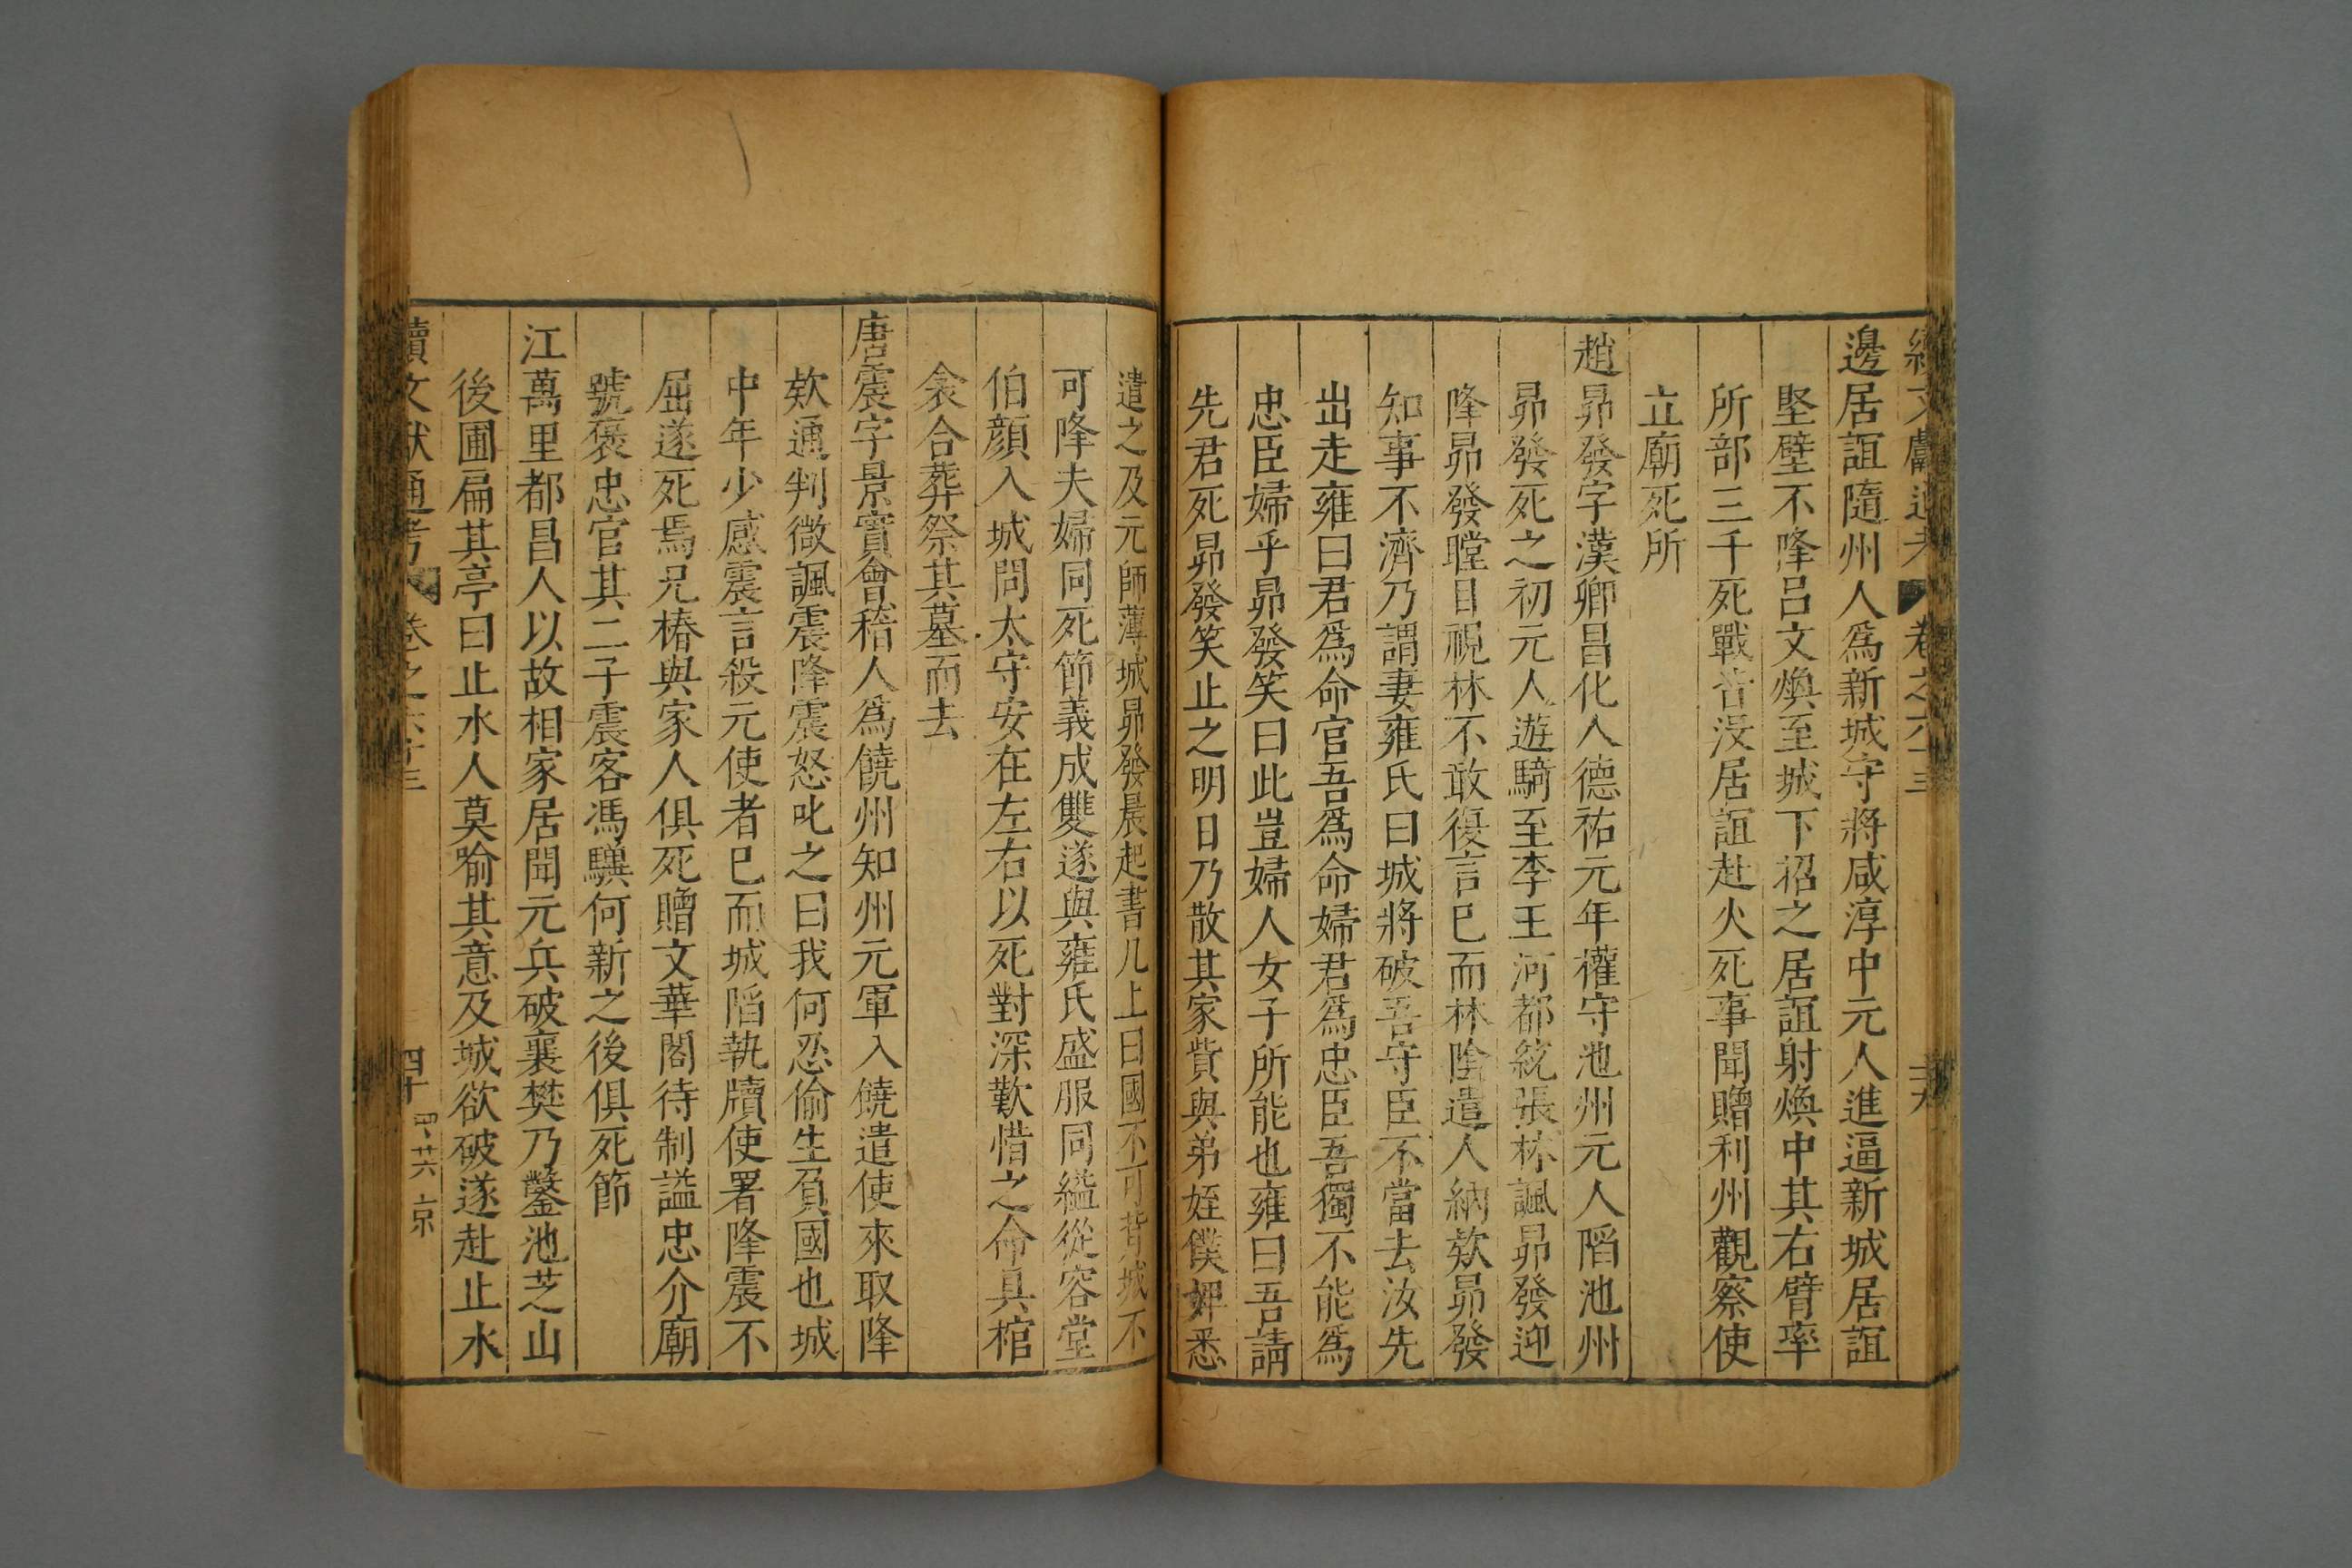 續文獻通考 卷之六十三
邊居誼隨州人爲新城守將咸淳中元人進逼新城居誼
堅壁不降吕文煥至城下招之居誼射煥中其右臂率
所部三千死戰皆没居誼赴火死事聞贈利州觀察使
立廟死所
趙昴發字漢卿昌化人德祐元年權守池州元人䧟池州
昴發死之初元人遊騎至李王河都統張林諷昴發迎
降昴發瞠目視林不敢復言已而林陰遣人納欵昴發
知事不濟乃謂妻雍氏曰城將破吾守臣不當去汝先
出走雍曰君爲命官吾爲命婦君爲忠臣吾獨不能爲
忠臣婦乎昴發笑曰此豈婦人女子所能也雍曰吾請
先君死昴發笑止之明日乃散其家貲與弟姪僕婢悉
遣之及元師薄城昴發晨起書几上曰國不可背城不
可降夫婦同死節義成雙遂與雍氏盛服同縊從容堂
伯顔入城問太守安在左右以死對深歎惜之命具棺
衾合葬祭其墓而去
唐震字景實會稽人爲饒州知州元軍入饒遣使來取降
欵通判微諷震降震怒叱之曰我何忍偷生負國也城
中年少感震言殺元使者已而城䧟執牘使署降震不
屈遂死焉兄椿與家人俱死贈文華閣待制謚忠介廟
號褒忠官其二子震客馮驥何新之後俱死節
江萬里都昌人以故相家居聞元兵破襄樊乃鑿池芝山
後圃扁其亭曰止水人莫喻其意及城欲破遂赴止水
續文獻通考 卷之六十三 四十